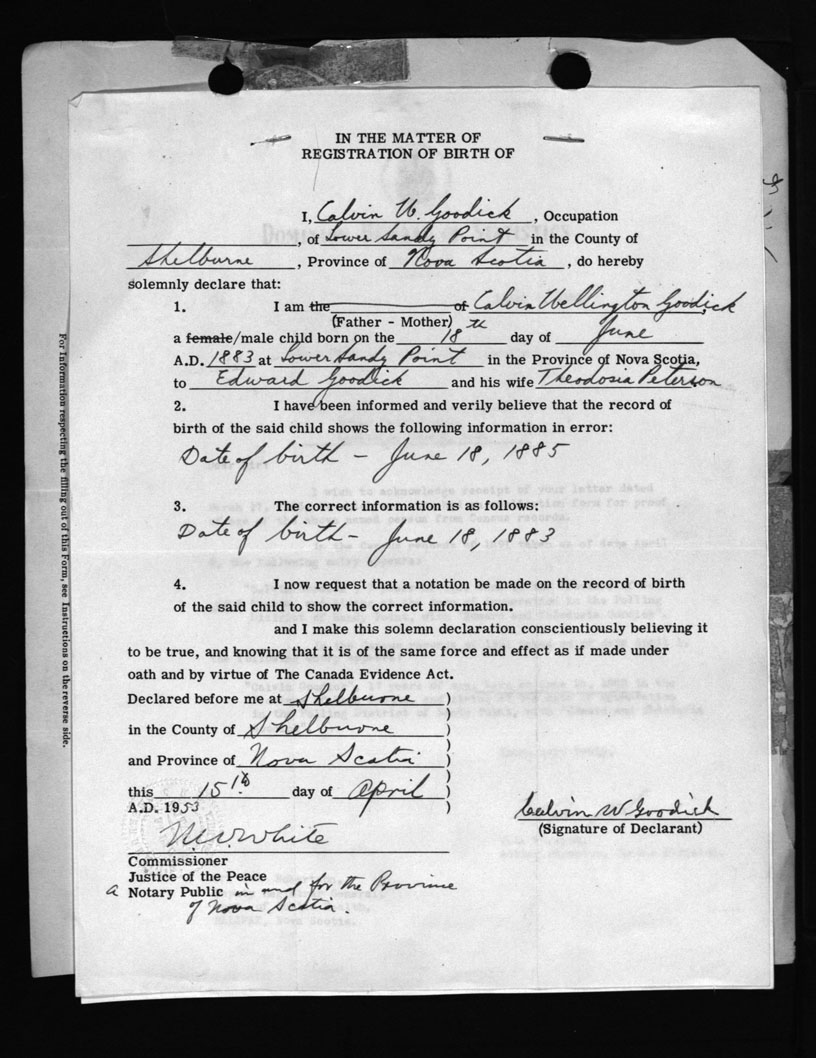 IN THE MATTER OF
REGISTRATION OF BIRTH OF
I, Calvin W. Goodick, Occupation
, of Lower Sandy Point in the County of
Shelburne, Province of Nova Scotia, do hereby
solemnly declare that:
1. I am the of Calvin Wellington Goodick
(Father - Mother)
a female/male child born on the 18th day of June
A.D. 1883 at Lower Sandy Point in the Province of Nova Scotia,
to Edward Goodick and his wife Theodosia Peterson
2. I have been informed and verily believe that the record of
birth of the said child shows the following information in error:
Date of birth - June 18, 1885
3. The correct information is as follows:
Date of birth - June 18, 1883
4. I now request that a notation be made on the record of birth
of the said child to show the correct information.
and I make this solemn declaration conscientiously believing it
to be true, and knowing that it is of the same force and effect as if made under
oath and by virtue of The Canada Evidence Act.
Declared before me at Shelburne )
in the County of Shelburne )
and Province of Nova Scotia )
)
this 15th day of April )
A.D. 1953 )
Calvin W Goodick
(Signature of Declarant)
White
Commissioner
Justice of the Peace
a Notary Public in and for the Province
of Nova Scotia.
For Information respecting the filling out of this Form, see Instructions on the reverse side.